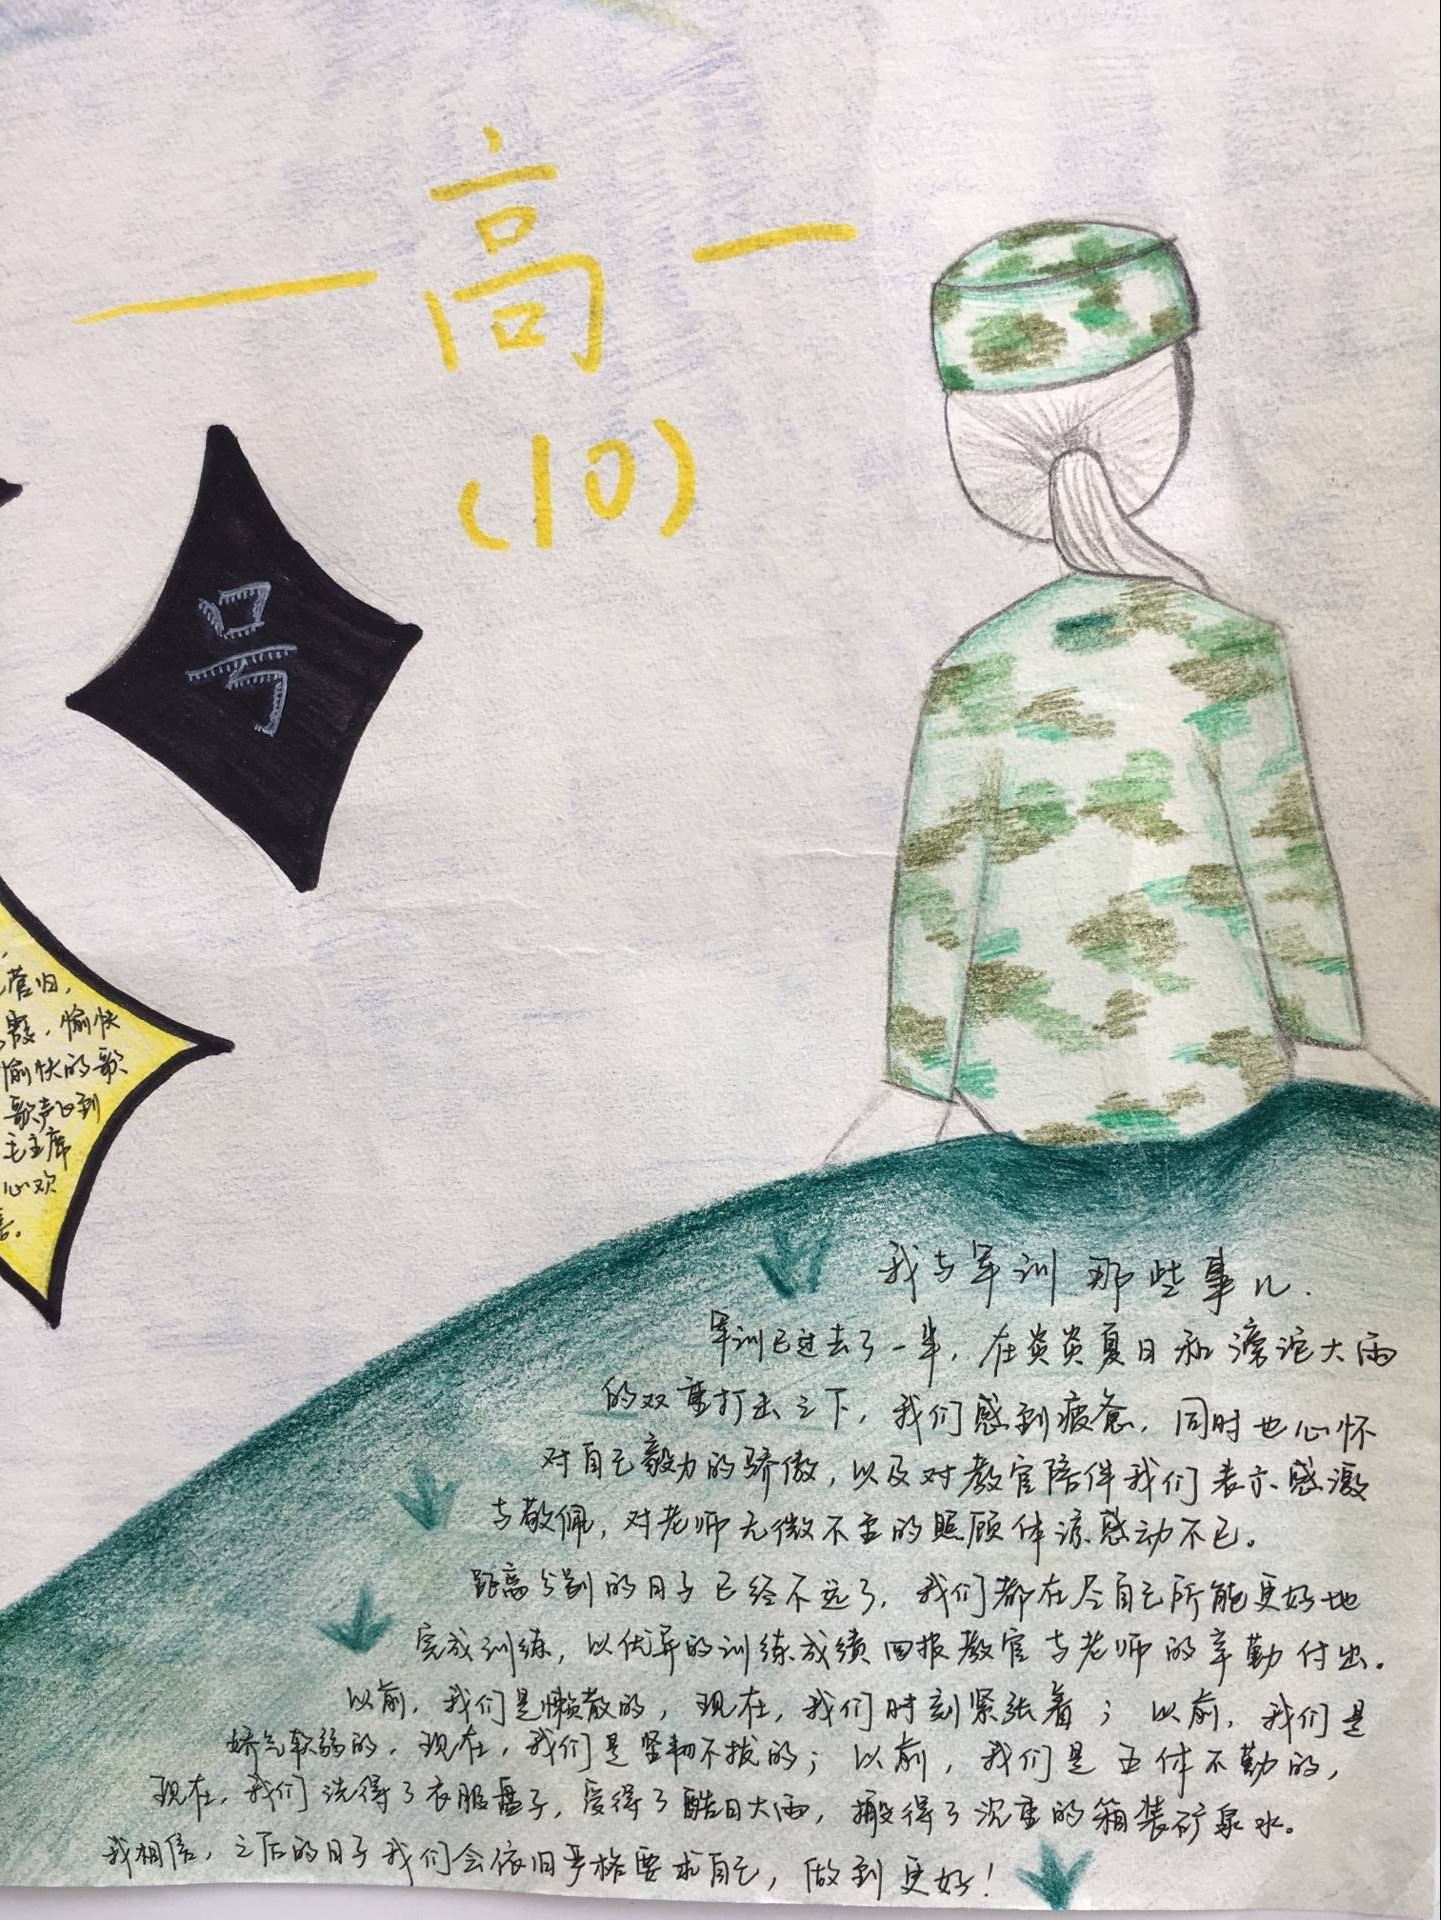 一高一
(10)
号
营归,
霞,愉快
愉快的歌
歌声飞到
毛主席
心欢
喜。
我与军训那些事儿.
军训已过去了一半,在炎炎夏日和滂沱大雨
的双重打击之下,我们感到疲惫,同时也心怀
对自己毅力的骄傲,以及对教官陪伴我们表示感激
与敬佩,对老师无微不至的照顾体谅感动不已。
距离分别的日子已经不远了,我们都在尽自己所能更好地
完成训练,以优异的训练成绩回报教官与老师的辛勤付出。
以前,我们是懒散的,现在,我们时刻紧张着;以前,我们是
娇气软弱的,现在,我们是坚韧不拔的;以前,我们是五体不勤的,
现在,我们洗得了衣服盘子,受得了酷日大雨,搬得了沉重的箱装矿泉水。
我相信,之后的日子我们会依旧严格要求自己,做到更好!